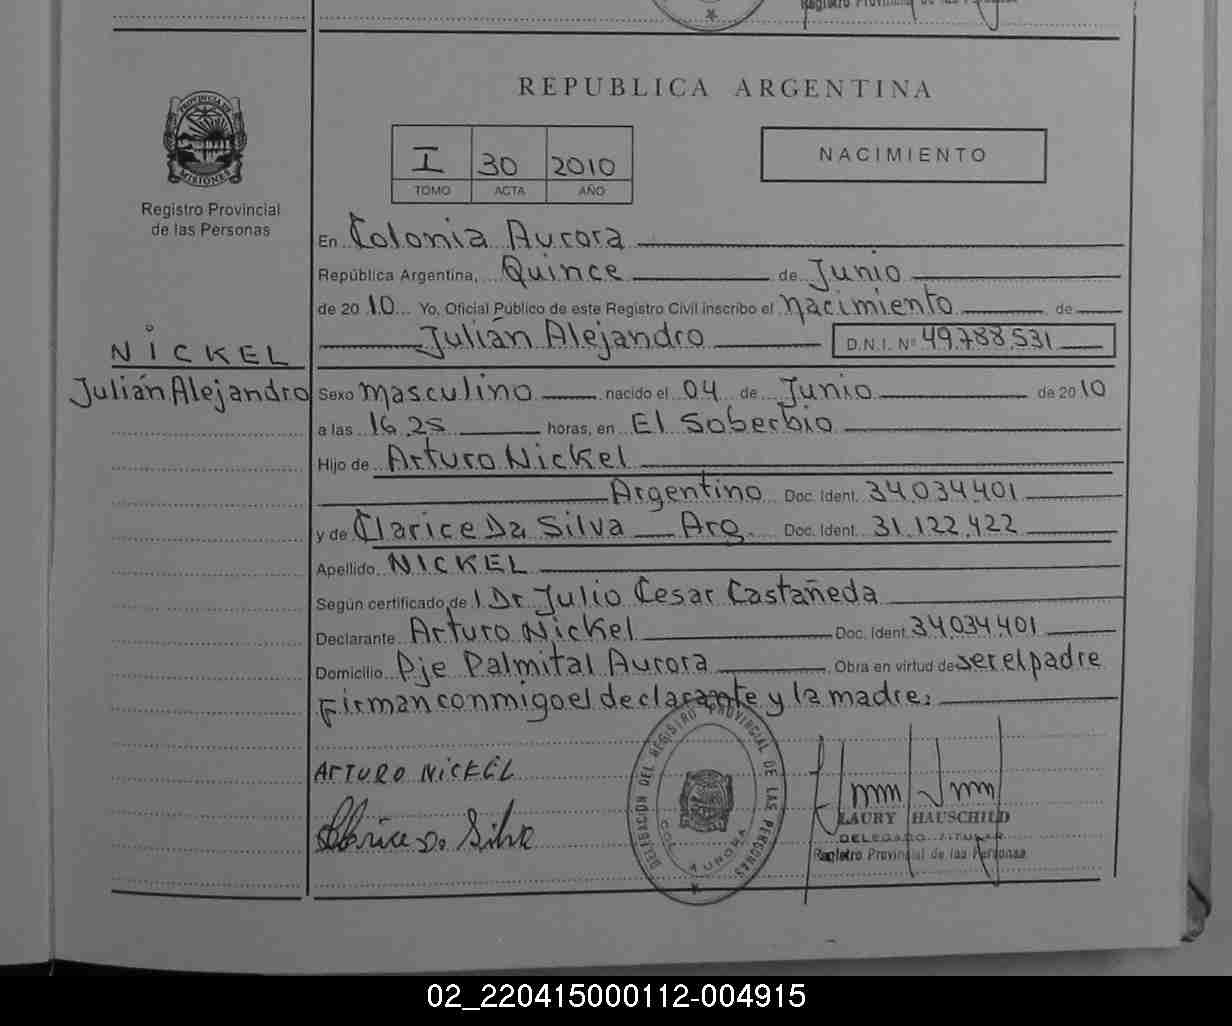 REPUBLICA ARGENTINA
PROVINCIA DE
MISIONES
Registro Provincial
de las Personas
I 30 2010
TOMO ACTA AÑO
NACIMIENTO
En Colonia Aurora
República Argentina, Quince de Junio
de 2010 Yo, Oficial Público de este Registro Civil inscribo el nacimiento de
Julián Alejandro D.N.I. Nº 49.788.531
NICKEL
Julián Alejandro
Sexo masculino nacido el 04 de Junio de 2010
a las 16,25 horas, en El Soberbio
Hijo de Arturo Nickel
Argentino Doc. Ident. 34.034.401
y de Clarice Da Silva Arg. Doc. Ident. 31.122.422
Apellido NICKEL
Según certificado de l Dr Julio Cesar Castañeda
Declarante Arturo Nickel Doc. Ident. 34.034.401
Domicilio Pje Palmital Aurora Obra en virtud de ser el padre
Firman conmigo el declarante y la madre.
ARTURO NICKEL
Clarice Da Silva
DELEGACION DEL REGISTRO PROVINCIAL DE LAS PERSONAS
COL. AURORA
LAURY HAUSCHILD
DELEGADO TITULAR
Registro Provincial de las Personas
02_220415000112-004915